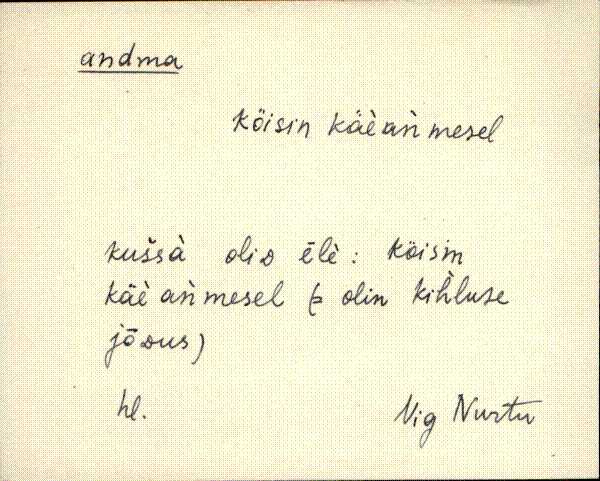 andma
köisin käèan̆mesel
kuššà oliᴅ ēlè: köisin
käè an̆mesel (= olin kih̀luse
jōᴅus)
hl.
Vig Nurtu